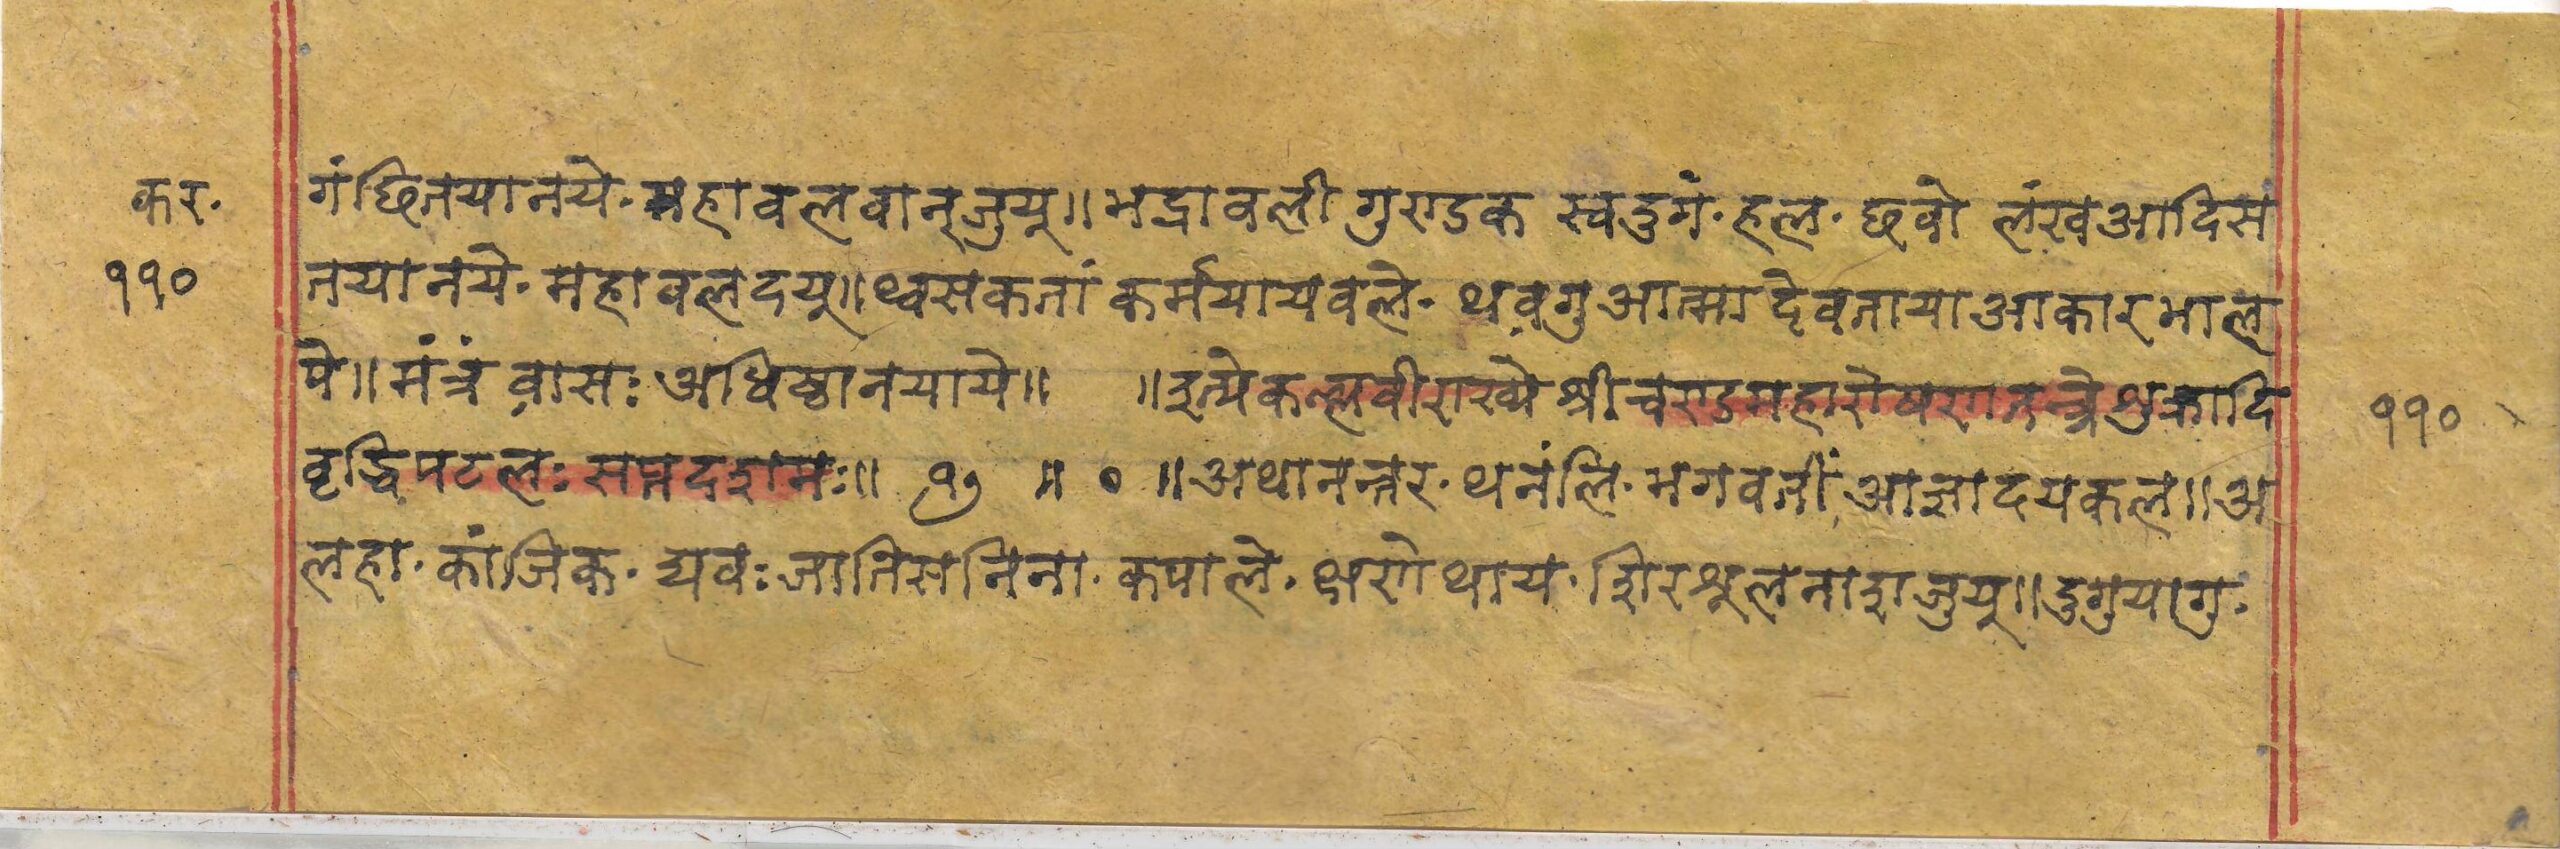 कर. गंछिनयानये. महावलवान्जुयु॥ भद्रावली गुरुण्डक स्वडुगं. हल. छवो लंखआदिस
११० नयानये. महावलदयु॥ थ्वसकतां कर्मयायवले. थवगु आत्मा देवताया आकारभाल
पे॥ मंत्रं वासः अधिष्ठानयाये॥ ॥ इत्येकल्लवीराख्ये श्रीचण्डमहारोषणतन्त्रे शुक्रादि ११०
वृद्धिपटलः सप्तदशमः॥ १७ ॥ ० ॥ अथानन्तर. थनंलि. भगवतीं आज्ञादयकल॥ अ
लहा. कांजिक. द्यवः जातिसनिना. कपाले. क्षरणे थाय. शिरशूलनाश जुयु॥ दुगुयागु.